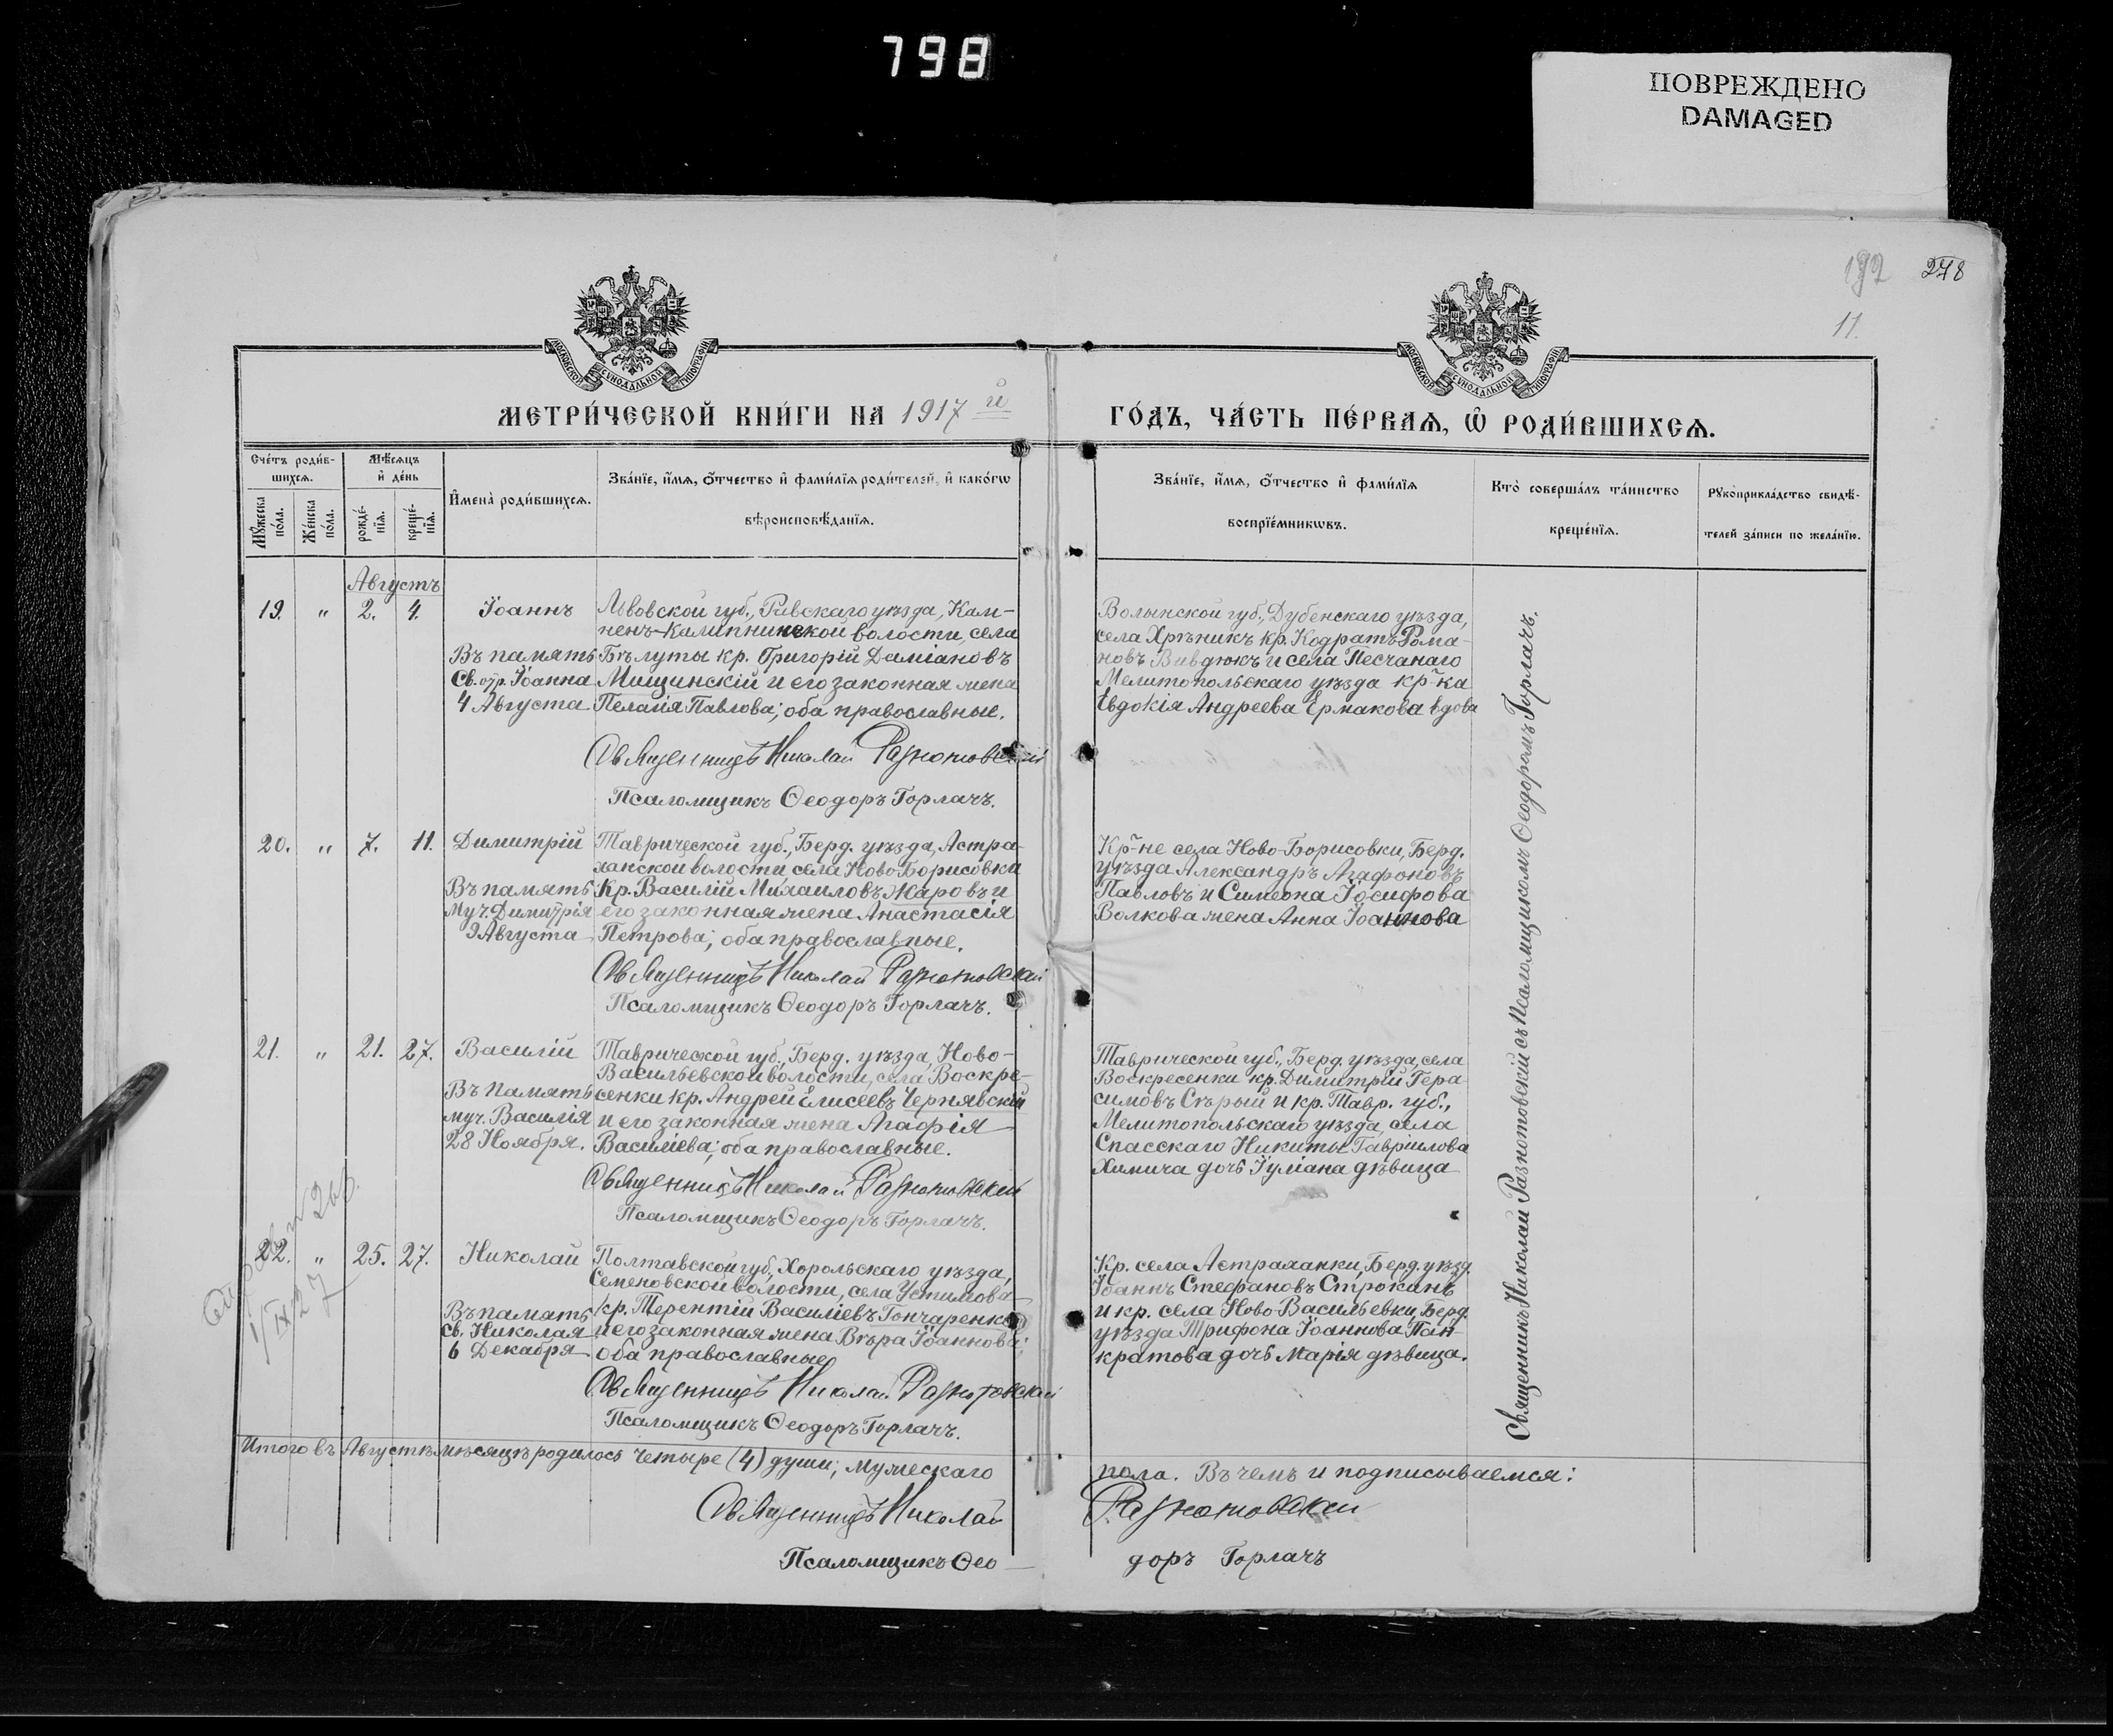 798
ПОВРЕЖДЕНО
DAMAGED
192 278
11.
МОСКОВСКОЙ СѴНОДАЛЬНОЙ ТИПОГРАФІИ
МОСКОВСКОЙ СѴНОДАЛЬНОЙ ТИПОГРАФІИ
МЕТРИ́ЧЕСКОЙ КНИ́ГИ НА 1917 й
ГО́ДЪ, ЧА́СТЬ ПЕ́РВАѦ, Ѿ РОДИ́ВШИХСѦ.
Сче́тъ роди́в-
шихсѧ.
Мѣ́сѧцъ
и҆ де́нь
Мꙋ́жеска
по́ла.
Же́нска
по́ла.
рожде́-
нїѧ.
креще́-
нїѧ.
И҆мена̀ роди́вшихсѧ.
Зва́нїе, и҆́мѧ, ѻ҆́тчество и҆ фами́лїѧ роди́телей, и҆ како́гѡ
вѣроисповѣ́данїѧ.
Зва́нїе, и҆́мѧ, ѻ҆́тчество и҆ фами́лїѧ
воспрїе́мникѡвъ.
Кто̀ соверша́лъ та́инство
креще́нїѧ.
Рꙋкоприкла́дство свидѣ́-
телей за́писи по жела́нїю.
Августъ
19. " 2. 4. Іоаннъ
Въ память
Св. отр. Іоанна
4 Августа
Львовской губ., Равскаго уѣзда, Кам-
волости, села
Бѣлуты кр. Григорій Даміановъ
Мищинскій и его законная жена
Пелагія Павлова; оба православные.
Священникъ Николай Разнотовскій
Псаломщикъ Ѳеодоръ Горлачъ.
Волынской губ., Дубенскаго уѣзда,
села Хрѣникъ кр. Кодратъ Рома-
новъ Вивдюкъ и села Песчанаго
Мелитопольскаго уѣзда кр-ка
Евдокія Андреева Ермакова вдова
20. " 7. 11. Димитрій
Въ память
Муч. Димитрія
9 Августа
Таврической губ., Берд. уѣзда, Астра-
ханской волости, села Ново-Борисовки
Кр. Василій Михаиловъ Жаровъ и
его законная жена Анастасія
Петрова; оба православные.
Священникъ Николай Разнотовскій
Псаломщикъ Ѳеодоръ Горлачъ.
Кр-не села Ново-Борисовки, Берд.
уѣзда Александръ Агафоновъ
Павловъ и Симеона Іосифова
Волкова жена Анна Іоаннова
21. " 21. 27. Василій
Въ память
муч. Василія
28 Ноября.
Таврической губ., Берд. уѣзда, Ново-
Васильевской волости, села Воскре-
сенки кр. Андрей Елисеевъ Чернявскій
и его законная жена Агафія
Василіева; оба православные.
Священникъ Николай Разнотовскій
Псаломщикъ Ѳеодоръ Горлачъ.
Таврической губ., Берд. уѣзда, села
Воскресенки кр. Димитрій Гера-
симовъ Сѣрый и кр. Тавр. губ.,
Мелитопольскаго уѣзда, села
Спасскаго Никиты Гавріилова
Химича дочь Іуліана дѣвица
22. " 25. 27. Николай
Въ память
Св. Николая
6 Декабря
Полтавской губ., Хорольскаго уѣзда,
Семеновской волости, села Устимова
кр. Терентій Василіевъ Гончаренко
и его законная жена Вѣра Іоаннова;
оба православные
Священникъ Николай Разнотовскій
Псаломщикъ Ѳеодоръ Горлачъ.
Кр. села Астраханки, Берд. уѣзд.
Іоаннъ Стефановъ Строкань
и кр. села Ново-Васильевки, Берд.
уѣзда Трифона Іоаннова Пан-
кратова дочь Марія дѣвица.
Священникъ Николай Разнотовскій съ Псаломщикомъ Ѳеодоромъ Горлачъ.
Итого въ Августѣ мѣсяцѣ родилось четыре (4) души; мужескаго
пола. Въ чемъ и подписываемся:
Священникъ Николай
Разнотовскій
Псаломщикъ Ѳео-
доръ Горлачъ